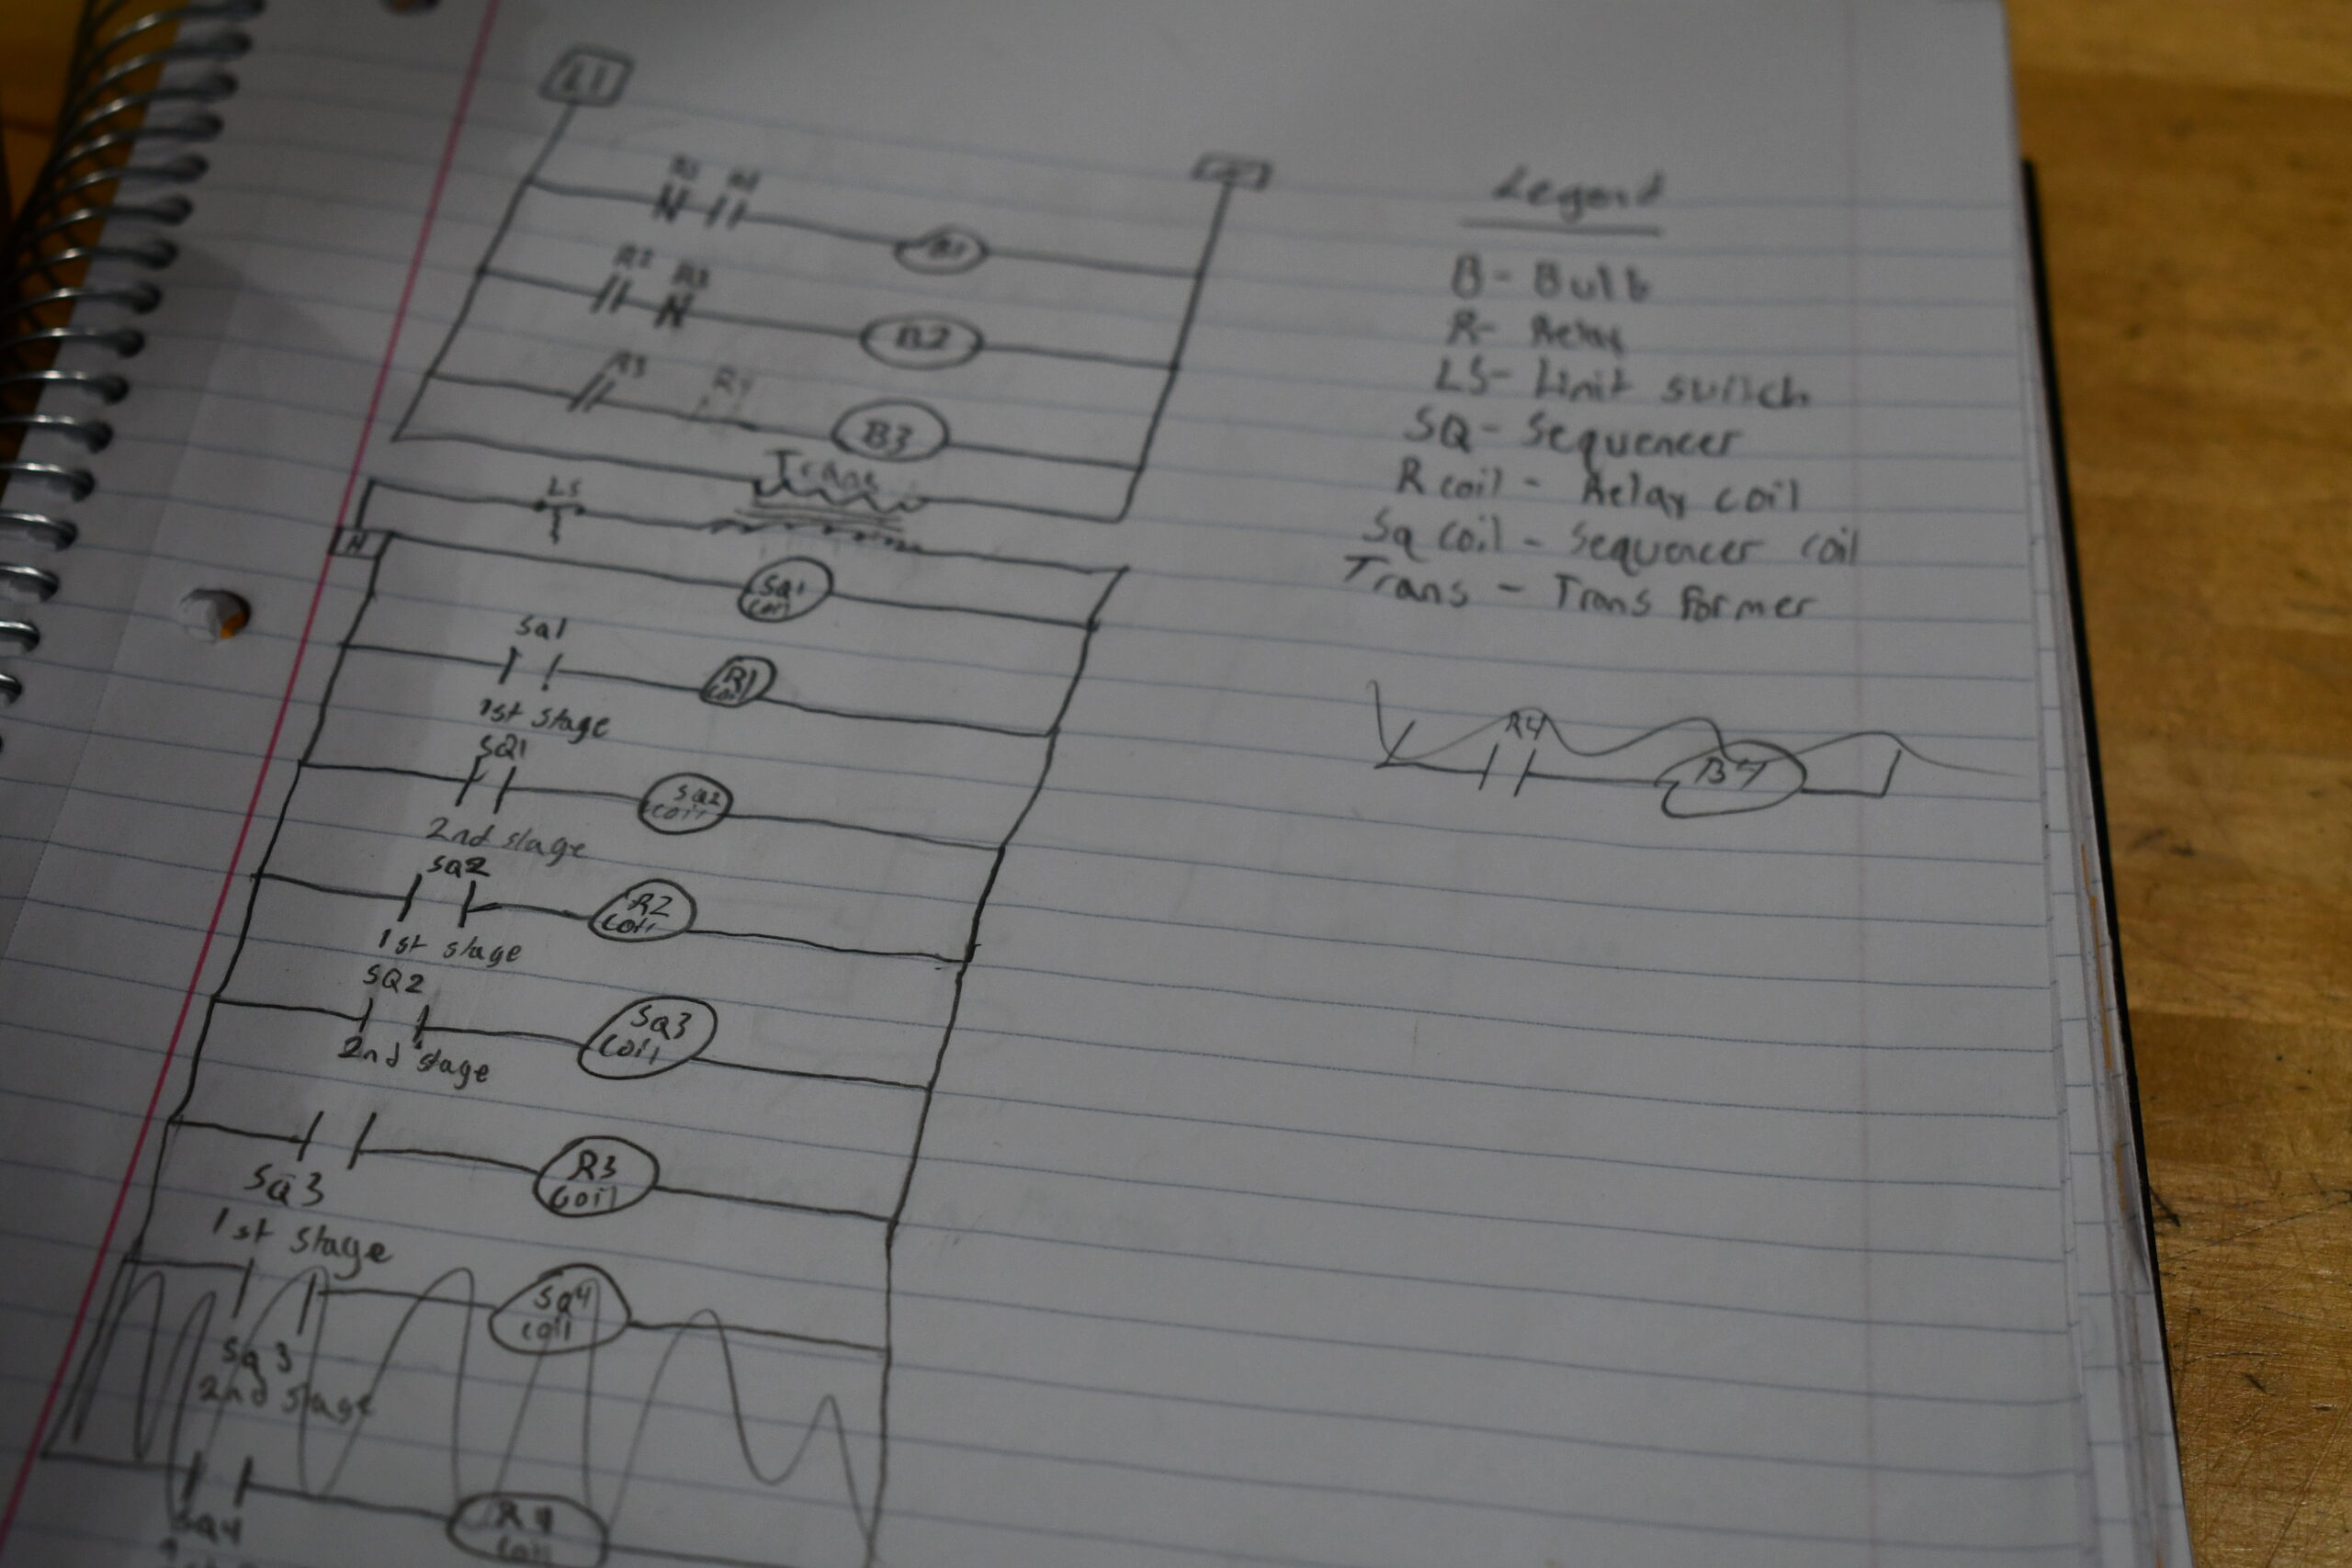 L1
Legend
B - Bulb
R2
R3
B2
R - Relay
LS - Limit switch
R3
R4
B3
SQ - Sequencer
Trans
LS
R coil - Relay coil
Sq coil - Sequencer coil
Sq1
coil
Trans - Trans former
Sq1
R1
coil
1st stage
R4
B4
SQ1
Sq2
coil
2nd stage
Sq2
R2
coil
1st stage
SQ2
Sq3
coil
2nd stage
R3
coil
SQ3
1st stage
Sq4
coil
Sq3
2nd stage
R4
coil
SQ4